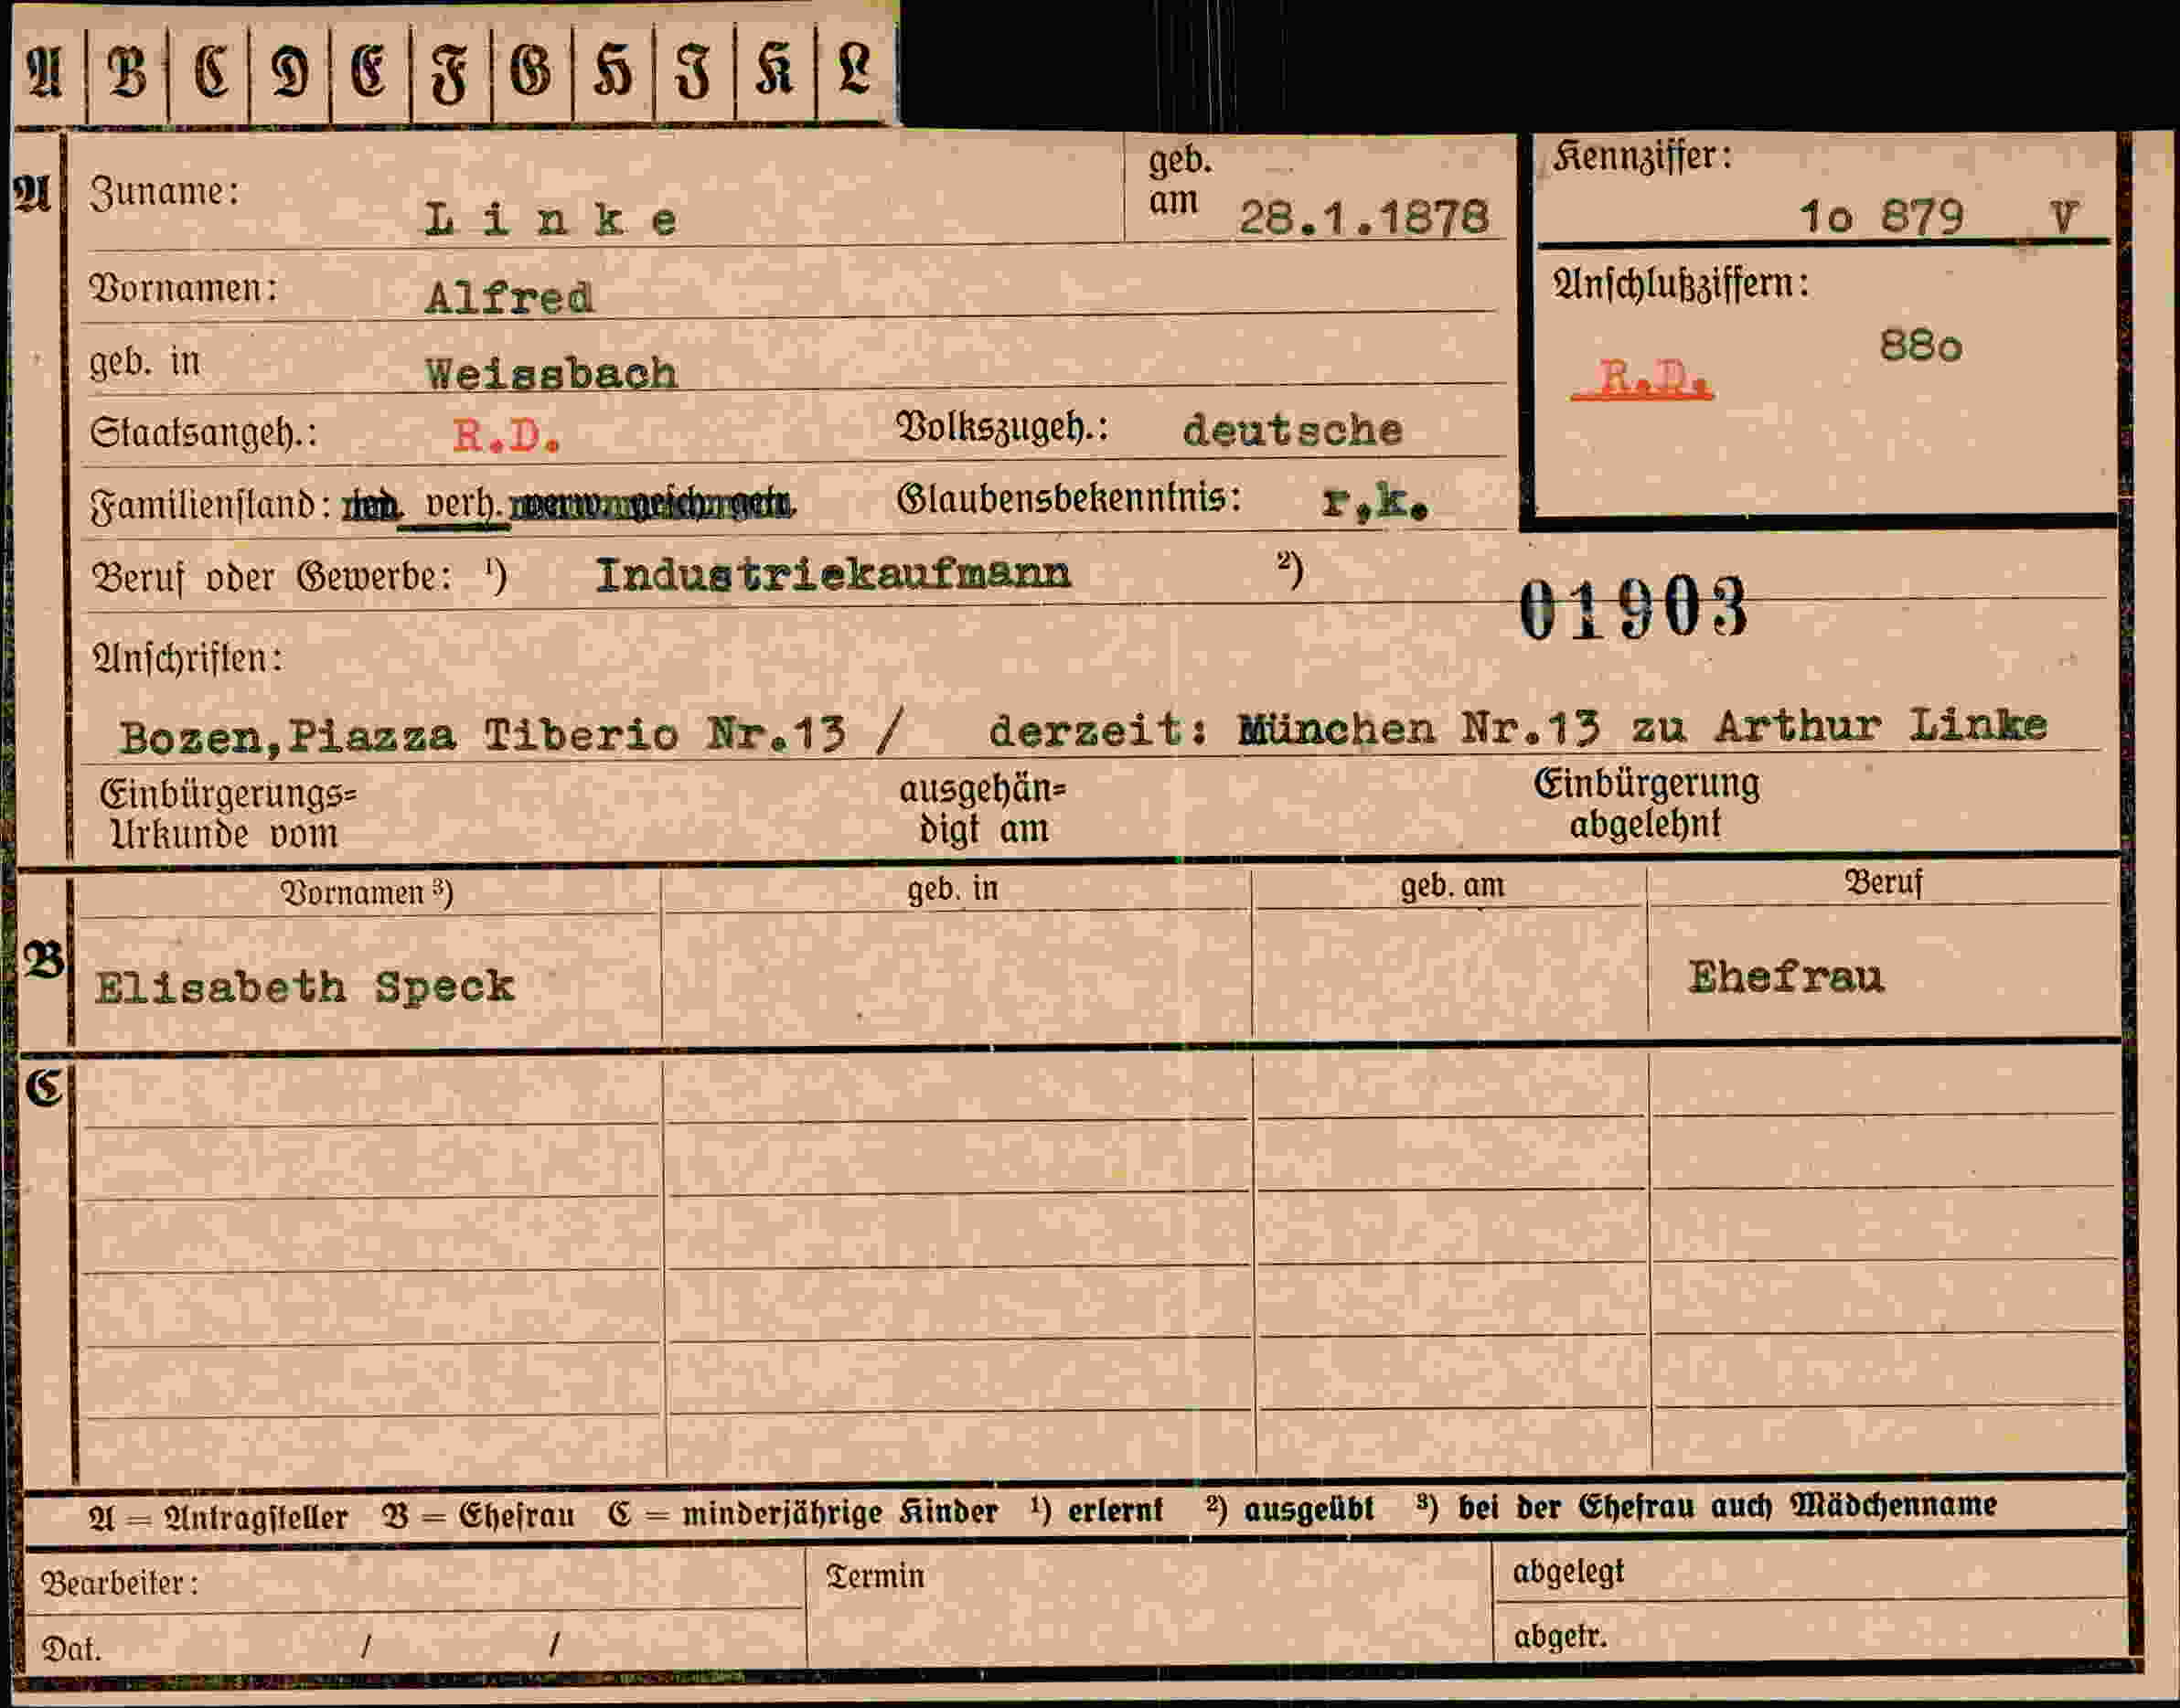 A B C D E F G H I K L
A
Zuname: Linke
geb. am 28.1.1878
Kennziffer: 1o 879 V
Vornamen: Alfred
Anschlußziffern:
R.D. 88o
geb. in Weissbach
Staatsangeh.: R.D. Volkszugeh.: deutsche
Familienstand: led. verh. verw. gesch. getr. Glaubensbekenntnis: r,k.
Beruf oder Gewerbe: ¹) Industriekaufmann ²)
01903
Anschriften:
Bozen,Piazza Tiberio Nr.13 / derzeit: München Nr.13 zu Arthur Linke
Einbürgerungs= ausgehän= Einbürgerung
Urkunde vom digt am abgelehnt
Vornamen ³) geb. in geb. am Beruf
B
Elisabeth Speck Ehefrau
C
A = Antragsteller B = Ehefrau C = minderjährige Kinder ¹) erlernt ²) ausgeübt ³) bei der Ehefrau auch Mädchenname
Bearbeiter: Termin abgelegt
Dat. / / abgetr.